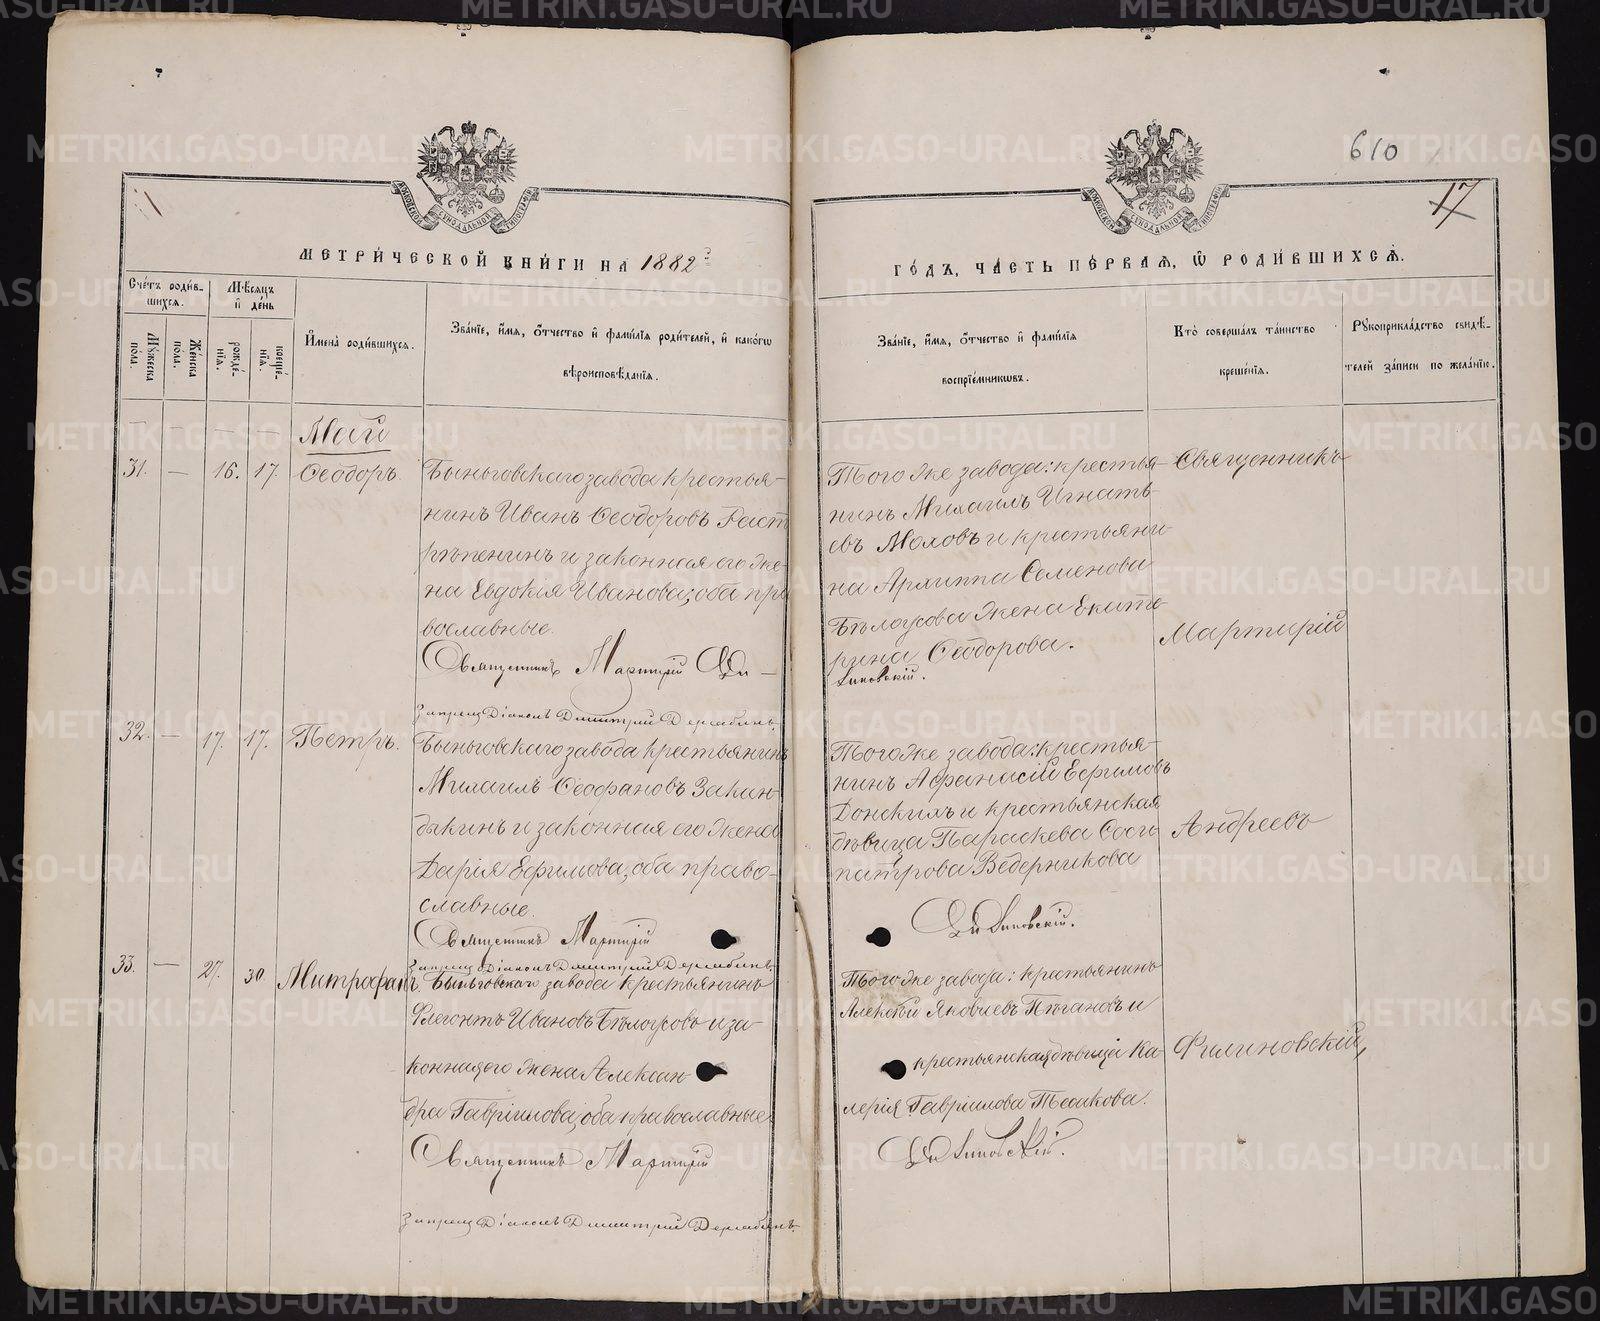 610
17
МЕТРИ́ЧЕСКОЙ КНИ́ГИ НА 1882 й
ГО́ДЪ, ЧА́СТЬ ПЕ́РВАѦ, Ѽ РОДИ́ВШИХСѦ.
Сче́тъ роди́в-
шихсѧ.
Мѣсѧцъ
и де́нь
Мꙋжеска
пола.
Же́нска
пола.
рожде́-
нїѧ.
креще́-
нїѧ.
Имена̀ роди́вшихсѧ.
Зва́нїе, и́мѧ, о́тчество и фами́лїѧ роди́телей, и како́гѡ
вѣроисповѣ́данїѧ.
Зва́нїе, и́мѧ, о́тчество и фами́лїѧ
воспрїе́мникѡвъ.
Кто̀ соверша́лъ та́инство
креще́нїѧ.
Рꙋкоприкла́дство свидѣ́-
телей за́писи по жела́нїю.
Май
31. — 16. 17. Ѳеодоръ.
Быньговскаго завода крестья-
нинъ Иванъ Ѳеодоровъ Раст
рѣпенинъ и законная его же-
на Евдокія Иванова, оба пра
вославные.
Священникъ Мартирій Фи-
Запрещ Діаконъ Димитрій Дерябинъ.
Того же завода: крестья-
нинъ Михаилъ Игнать-
евъ Моховъ и крестьяни-
на Архиппа Семенова
Бѣлоусова жена Екате-
рина Ѳеодорова.
линовскій.
Священникъ
Мартирій
Андреевъ
Филиновскій,
32. — 17. 17. Петръ.
Быньговскаго завода крестьянинъ
Михаилъ Ѳеофановъ Закан-
дыкинъ и законная его жена
Дарія Ефимова, оба право-
славные.
Священникъ Мартирій
Запрещ Діаконъ Димитрій Дерябинъ.
Того же завода: крестья-
нинъ Афанасій Ефимовъ
Донскихъ и крестьянская
дѣвица Параскева Соси-
патрова Ведерникова
Филиновскій.
33. — 27. 30. Митрофанъ.
Быньговскаго завода крестьянинъ
Флегонтъ Ивановъ Бѣлоусовъ и за-
конная его жена Алексан-
дра Гавріилова, оба православные
Священникъ Мартирій
Запрещ Діаконъ Димитрій Дерябинъ.
Того же завода: крестьянинъ
Алексѣй Яковлевъ Пѣгановъ и
крестьянская дѣвица Ка-
лерія Гавріилова Тесакова.
Филиновскій.
METRIKI.GASO-URAL.RU